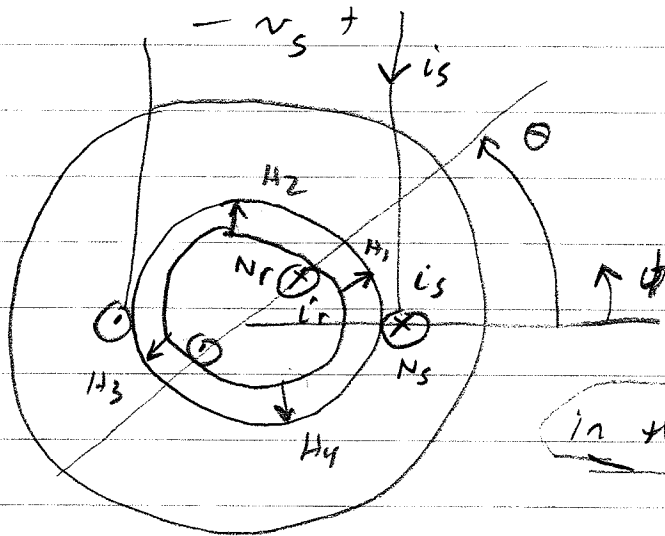 - v_s +
i_s
θ
H_2
H_1
N_r
i_r
i_s
ψ
N_s
H_3
H_4
in t